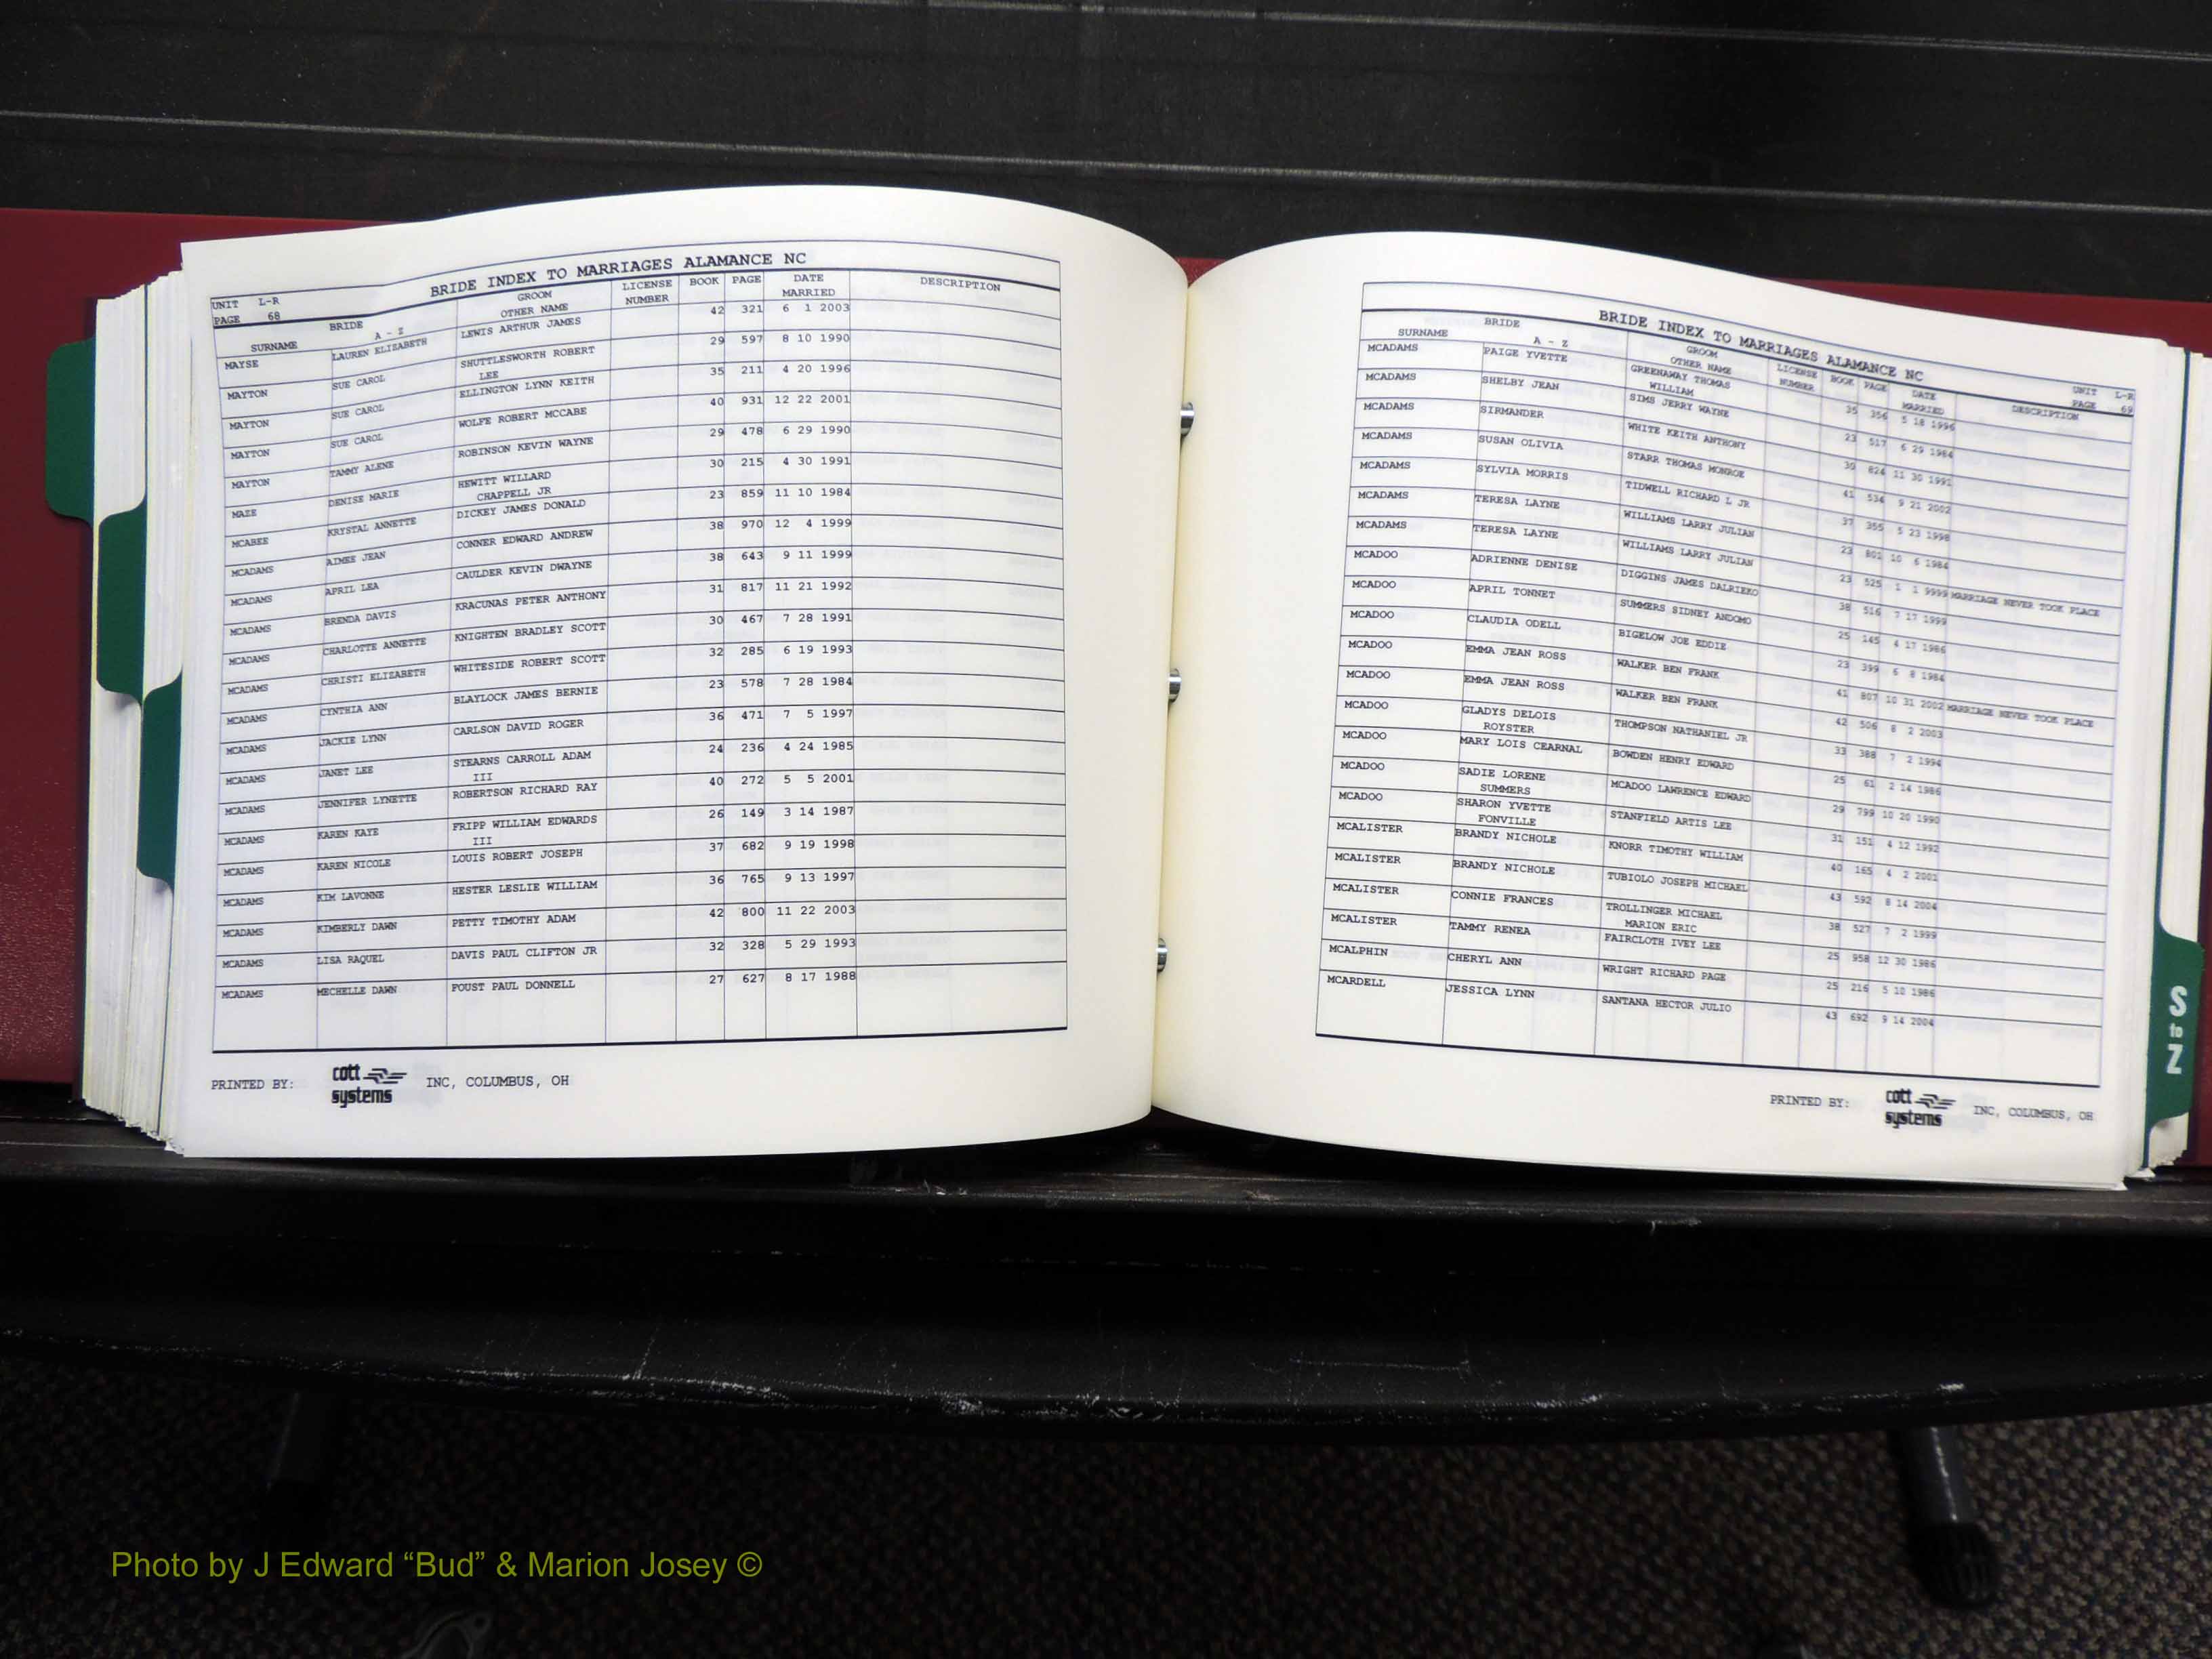 BRIDE INDEX TO MARRIAGES ALAMANCE NC
UNIT L-R
PAGE 68
BRIDE GROOM LICENSE BOOK PAGE DATE DESCRIPTION
SURNAME A - Z OTHER NAME NUMBER MARRIED
MAYSE LAUREN ELIZABETH LEWIS ARTHUR JAMES 42 321 6 1 2003
MAYTON SUE CAROL SHUTTLESWORTH ROBERT 29 597 8 10 1990
LEE
MAYTON SUE CAROL ELLINGTON LYNN KEITH 35 211 4 20 1996
MAYTON SUE CAROL WOLFE ROBERT MCCABE 40 931 12 22 2001
MAYTON TAMMY ALENE ROBINSON KEVIN WAYNE 29 478 6 29 1990
MAZE DENISE MARIE HEWITT WILLARD 30 215 4 30 1991
CHAPPELL JR
MCABEE KRYSTAL ANNETTE DICKEY JAMES DONALD 23 859 11 10 1984
MCADAMS AIMEE JEAN CONNER EDWARD ANDREW 38 970 12 4 1999
MCADAMS APRIL LEA CAULDER KEVIN DWAYNE 38 643 9 11 1999
MCADAMS BRENDA DAVIS KRACUNAS PETER ANTHONY 31 817 11 21 1992
MCADAMS CHARLOTTE ANNETTE KNIGHTEN BRADLEY SCOTT 30 467 7 28 1991
MCADAMS CHRISTI ELIZABETH WHITESIDE ROBERT SCOTT 32 285 6 19 1993
MCADAMS CYNTHIA ANN BLAYLOCK JAMES BERNIE 23 578 7 28 1984
MCADAMS JACKIE LYNN CARLSON DAVID ROGER 36 471 7 5 1997
MCADAMS JANET LEE STEARNS CARROLL ADAM 24 236 4 24 1985
III
MCADAMS JENNIFER LYNETTE ROBERTSON RICHARD RAY 40 272 5 5 2001
MCADAMS KAREN KAYE FRIPP WILLIAM EDWARDS 26 149 3 14 1987
III
MCADAMS KAREN NICOLE LOUIS ROBERT JOSEPH 37 682 9 19 1998
MCADAMS KIM LAVONNE HESTER LESLIE WILLIAM 36 765 9 13 1997
MCADAMS KIMBERLY DAWN PETTY TIMOTHY ADAM 42 800 11 22 2003
MCADAMS LISA RAQUEL DAVIS PAUL CLIFTON JR 32 328 5 29 1993
MCADAMS MECHELLE DAWN FOUST PAUL DONNELL 27 627 8 17 1988
PRINTED BY: cott systems INC, COLUMBUS, OH
BRIDE INDEX TO MARRIAGES ALAMANCE NC
UNIT L-R
PAGE 69
BRIDE GROOM LICENSE BOOK PAGE DATE DESCRIPTION
SURNAME A - Z OTHER NAME NUMBER MARRIED
MCADAMS PAIGE YVETTE GREENAWAY THOMAS 35 356 5 18 1996
WILLIAM
MCADAMS SHELBY JEAN SIMS JERRY WAYNE 23 517 6 29 1984
MCADAMS SIRMANDER WHITE KEITH ANTHONY 30 824 11 30 1991
MCADAMS SUSAN OLIVIA STARR THOMAS MONROE 41 534 9 21 2002
MCADAMS SYLVIA MORRIS TIDWELL RICHARD L JR 37 355 5 23 1998
MCADAMS TERESA LAYNE WILLIAMS LARRY JULIAN 23 801 10 6 1984
MCADAMS TERESA LAYNE WILLIAMS LARRY JULIAN 23 525 1 1 9999 MARRIAGE NEVER TOOK PLACE
MCADOO ADRIENNE DENISE DIGGINS JAMES DALRIEKO 38 516 7 17 1999
MCADOO APRIL TONNET SUMMERS SIDNEY ANDOMO 25 145 4 17 1986
MCADOO CLAUDIA ODELL BIGELOW JOE EDDIE 23 399 6 8 1984
MCADOO EMMA JEAN ROSS WALKER BEN FRANK 41 807 10 31 2002 MARRIAGE NEVER TOOK PLACE
MCADOO EMMA JEAN ROSS WALKER BEN FRANK 42 506 8 2 2003
MCADOO GLADYS DELOIS THOMPSON NATHANIEL JR 33 388 7 2 1994
ROYSTER
MCADOO MARY LOIS CEARNAL BOWDEN HENRY EDWARD 25 61 2 14 1986
MCADOO SADIE LORENE MCADOO LAWRENCE EDWARD 29 799 10 20 1990
SUMMERS
MCADOO SHARON YVETTE STANFIELD ARTIS LEE 31 151 4 12 1992
FONVILLE
MCALISTER BRANDY NICHOLE KNORR TIMOTHY WILLIAM 40 165 4 2 2001
MCALISTER BRANDY NICHOLE TUBIOLO JOSEPH MICHAEL 43 592 8 14 2004
MCALISTER CONNIE FRANCES TROLLINGER MICHAEL 38 527 7 2 1999
MARION ERIC
MCALISTER TAMMY RENEA FAIRCLOTH IVEY LEE 25 958 12 30 1986
MCALPHIN CHERYL ANN WRIGHT RICHARD PAGE 25 216 5 10 1986
MCARDELL JESSICA LYNN SANTANA HECTOR JULIO 43 692 9 14 2004
PRINTED BY: cott systems INC, COLUMBUS, OH
S
to
Z
Photo by J Edward “Bud” & Marion Josey ©